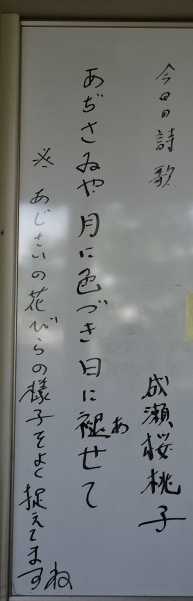 今日の詩歌
成瀬桜桃子
あぢさゐや月に色づき日に褪せて
あ
※あじさいの花びらの様子をよく捉えてますね